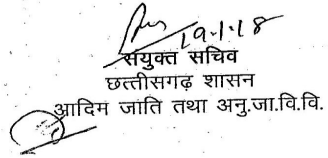 19.1.18
संयुक्त सचिव
छत्तीसगढ़ शासन
आदिम जाति तथा अनु.जा.वि.वि.